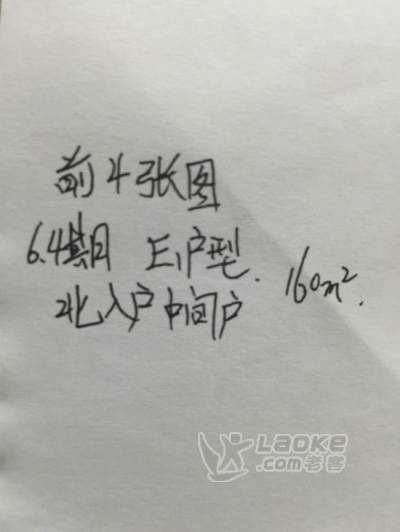 前4张图
6.4期 E1户型. 160m².
北入户中间户
LAOKE
.com老客